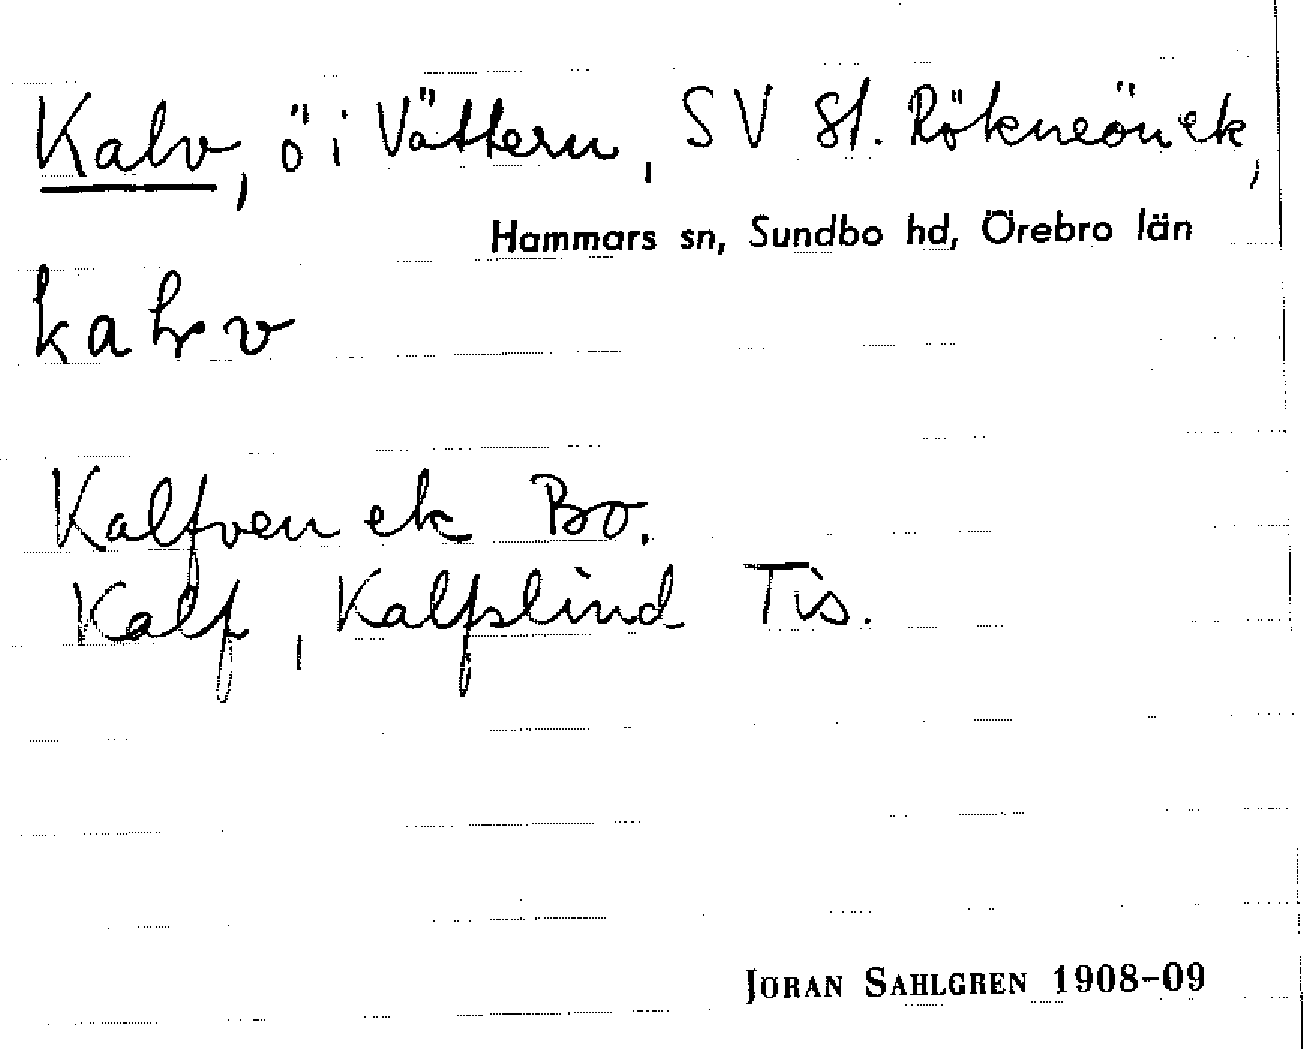 Kalv, ö i Vättern, SV St. Rökneön ek,
Hammars sn, Sundbo hd, Örebro län
Kalfven ek Bo.
Kalf, Kalfslind Tis.
JÖRAN SAHLGREN 1908-09